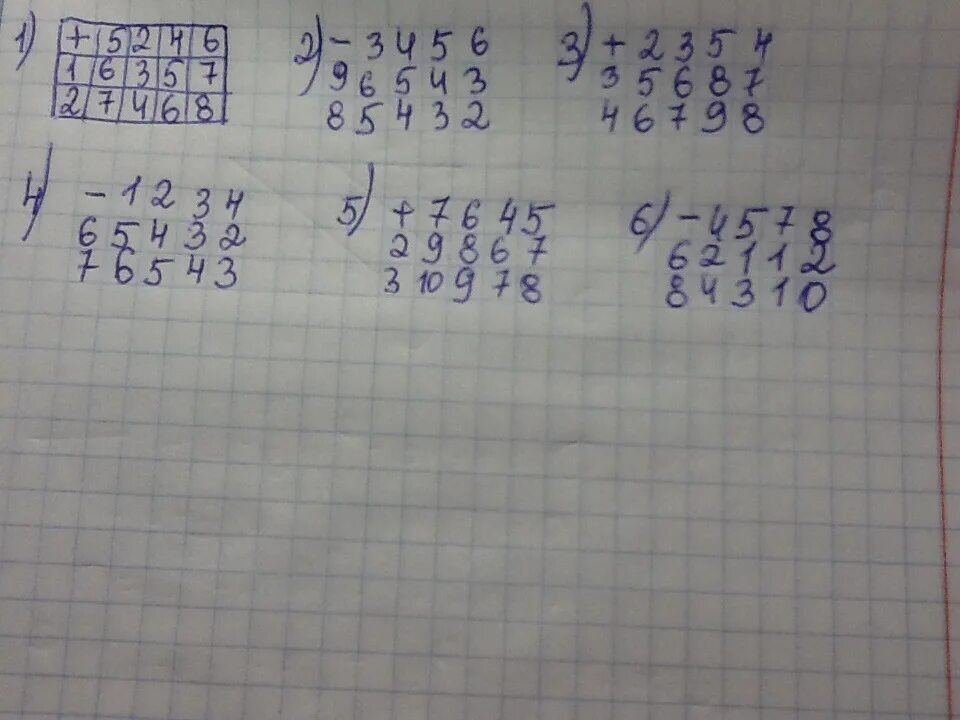 1) + 5 2 4 6
1 6 3 5 7
2 7 4 6 8
2) - 3 4 5 6
9 6 5 4 3
8 5 4 3 2
3) + 2 3 5 4
3 5 6 8 7
4 6 7 9 8
4) - 1 2 3 4
6 5 4 3 2
7 6 5 4 3
5) + 7 6 4 5
2 9 8 6 7
3 10 9 7 8
6) - 4 5 7 8
6 2 1 1 2
8 4 3 1 0